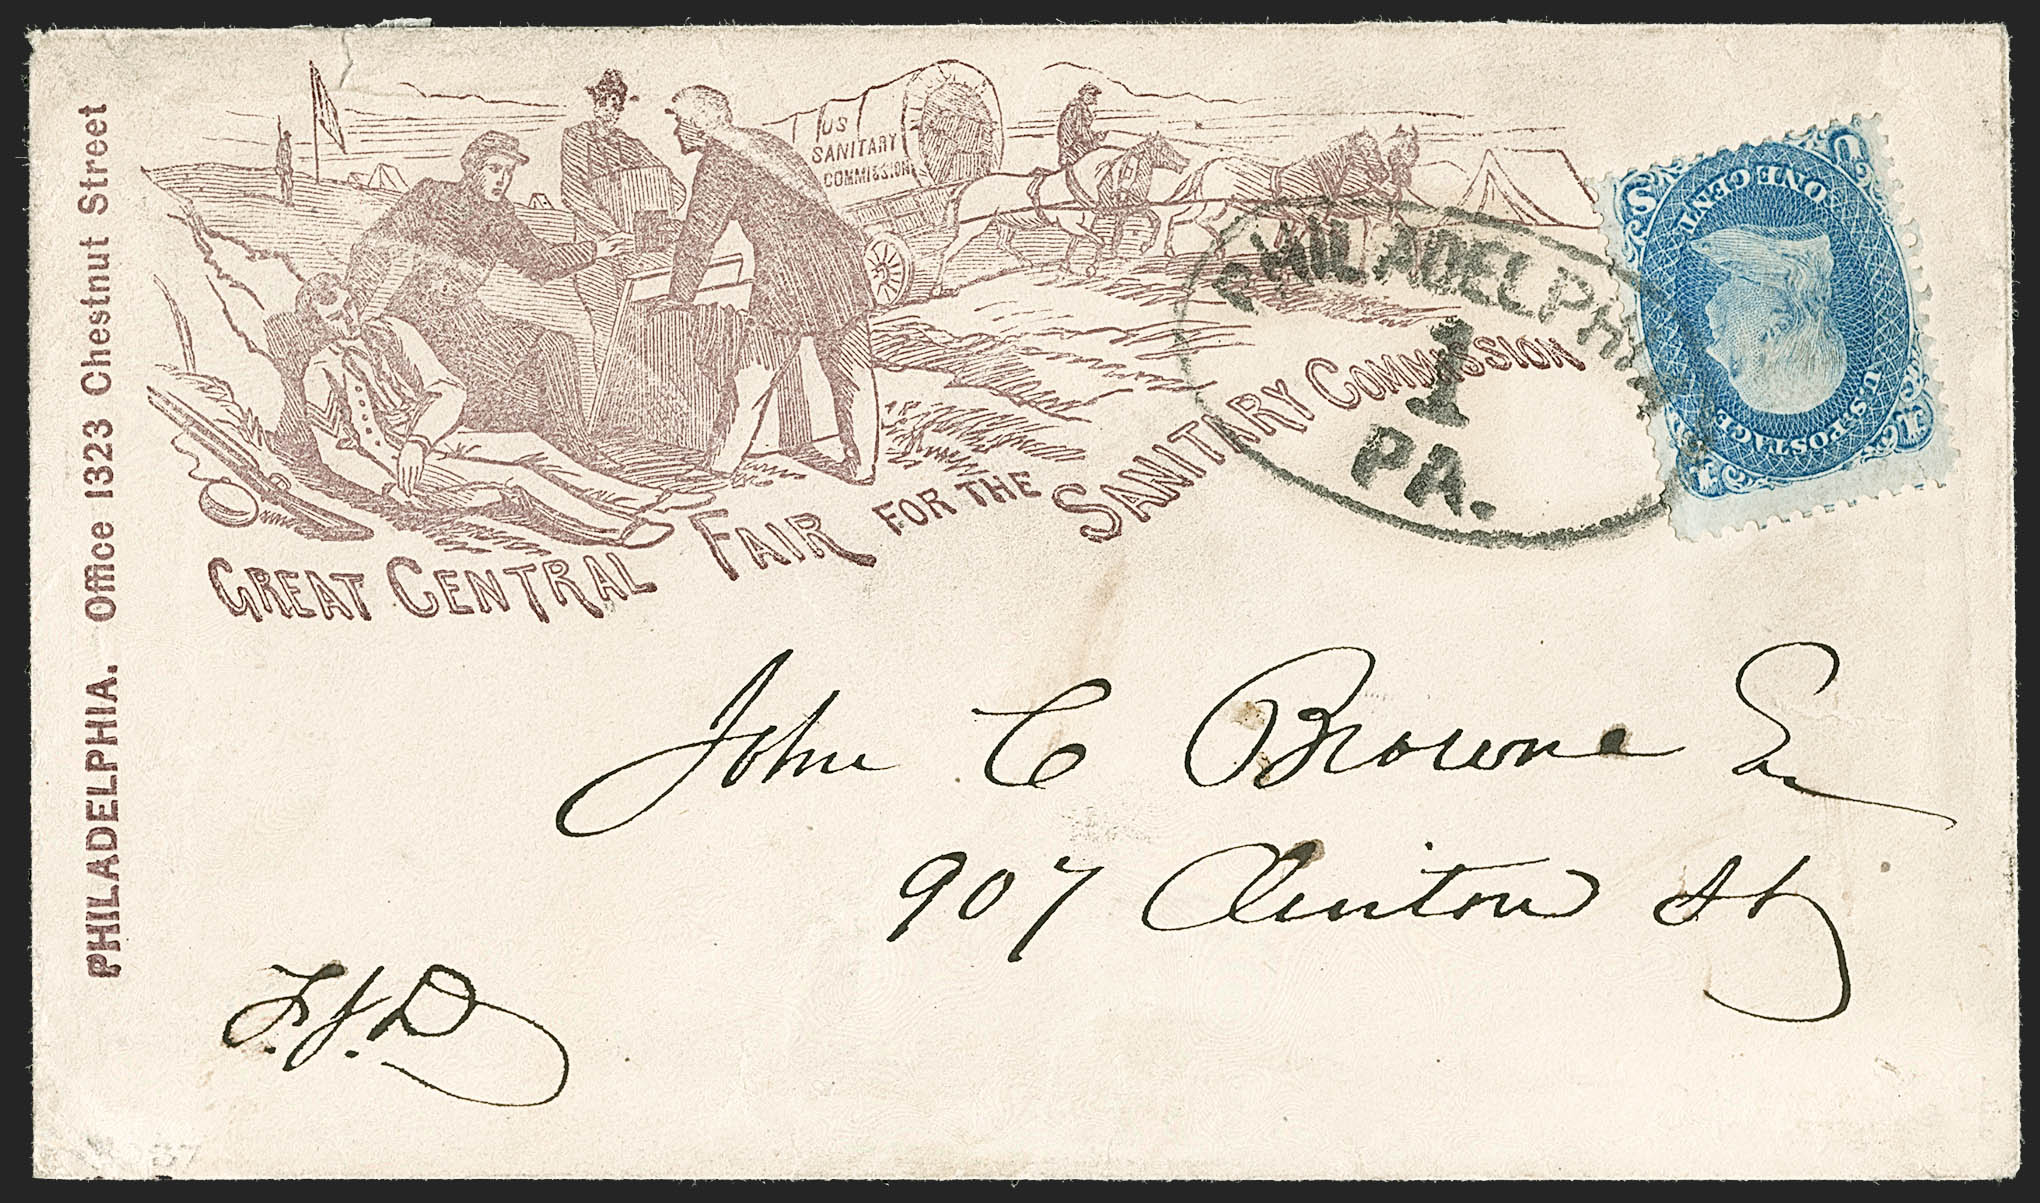 PHILADELPHIA. Office 1323 Chestnut Street
US
SANITARY
COMMISSION
GREAT CENTRAL FAIR FOR THE SANITARY COMMISSION
PHILADELPHIA
1
PA.
U S
ONE CENT
U.S. POSTAGE
1 1
John C Browne Esq
907 Clinton St
F.J.D